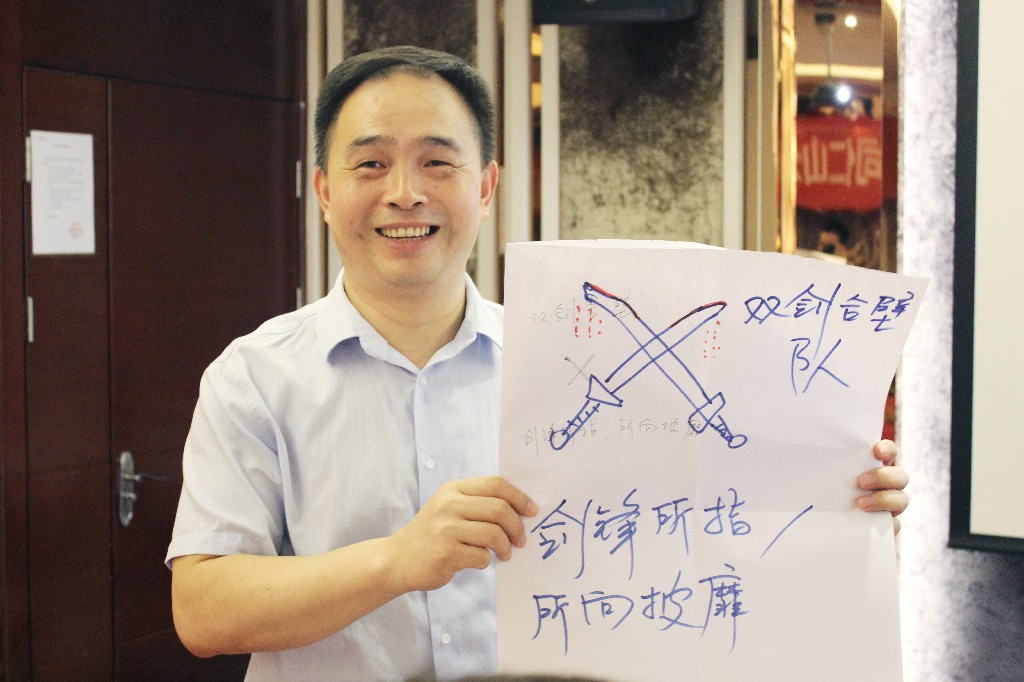 双剑合壁
队
剑锋所指，所向披靡
剑锋所指，
所向披靡
同仁山